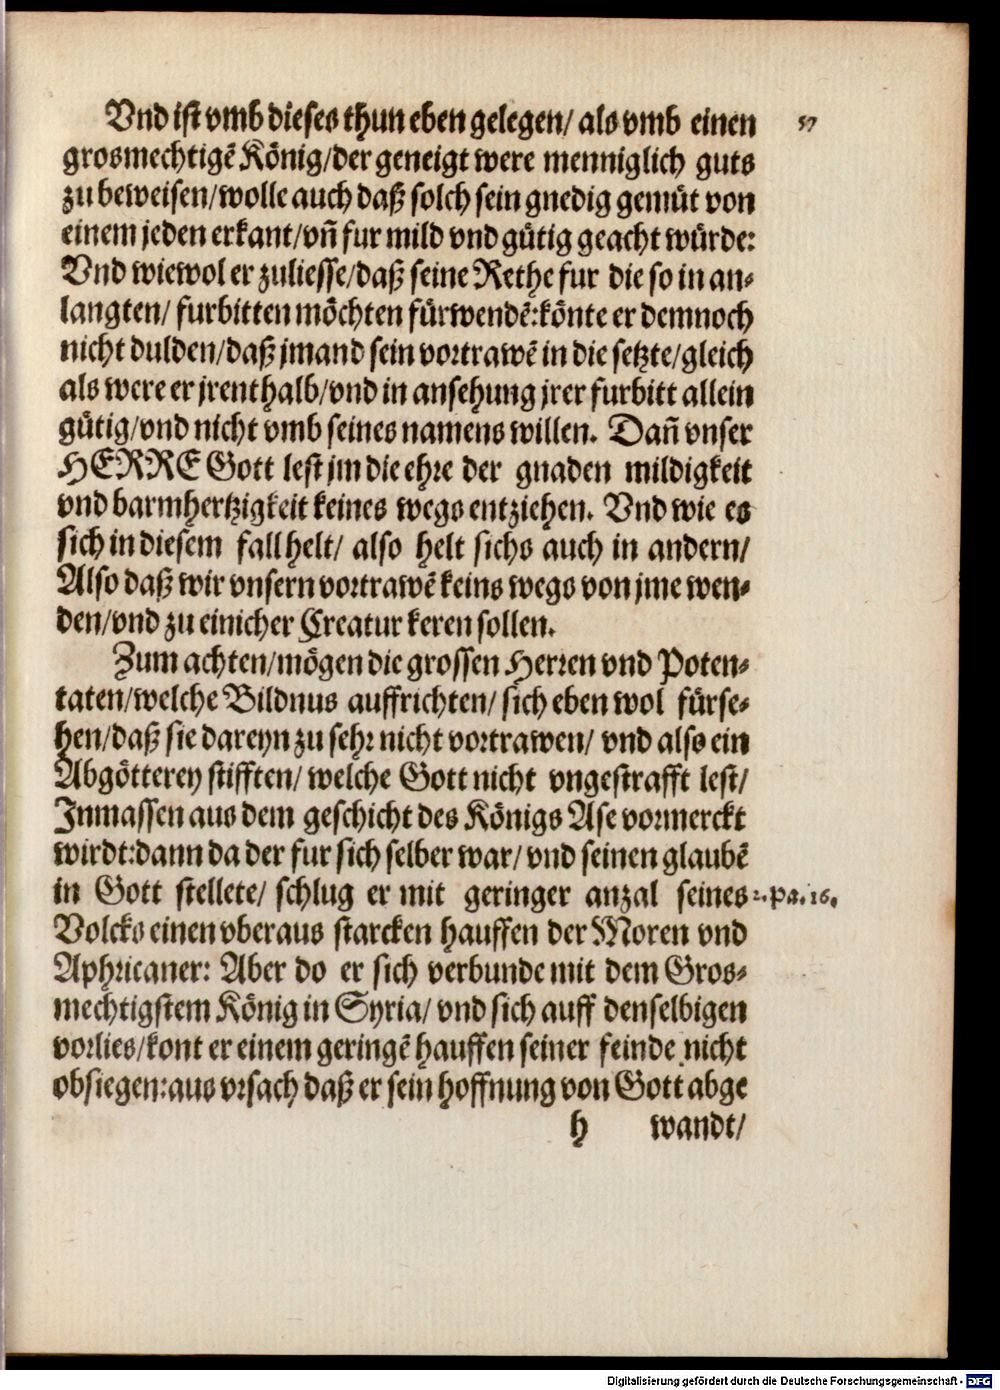 Vnd ist vmb dieses thun eben gelegen/ als vmb einen
57
grosmechtigẽ König/der geneigt were menniglich guts
zu beweisen/wolle auch daß solch sein gnedig gemüt von
einem jeden erkant/vñ fur mild vnd gütig geacht würde:
Vnd wiewol er zuliesse/daß seine Rethe fur die so in an-
langten/ furbitten möchten fürwendẽ:könte er demnoch
nicht dulden/daß jmand sein vortrawẽ in die setzte/gleich
als were er jrenthalb/vnd in ansehung jrer furbitt allein
gütig/vnd nicht vmb seines namens willen. Dañ vnser
HERRE Gott lest jm die ehre der gnaden mildigkeit
vnd barmhertzigkeit keines wegs entziehen. Vnd wie es
sich in diesem fall helt/ also helt sichs auch in andern/
Also daß wir vnsern vortrawẽ keins wegs von jme wen-
den/vnd zu einicher Creatur keren sollen.
Zum achten/mögen die grossen Herren vnd Poten-
taten/welche Bildnus auffrichten/ sich eben wol fürse-
hen/daß sie dareyn zu sehr nicht vortrawen/ vnd also ein
Abgötterey stifften/ welche Gott nicht vngestrafft lest/
Inmassen aus dem geschicht des Königs Ase vormerckt
wirdt:dann da der fur sich selber war/ vnd seinen glaubẽ
in Gott stellete/ schlug er mit geringer anzal seines
2. Pa. 16.
Volcks einen vberaus starcken hauffen der Moren vnd
Aphricaner: Aber do er sich verbunde mit dem Gros-
mechtigstem König in Syria/ vnd sich auff denselbigen
vorlies/kont er einem geringẽ hauffen seiner feinde nicht
obsiegen:aus vrsach daß er sein hoffnung von Gott abge
h wandt/
Digitalisierung gefördert durch die Deutsche Forschungsgemeinschaft - DFG